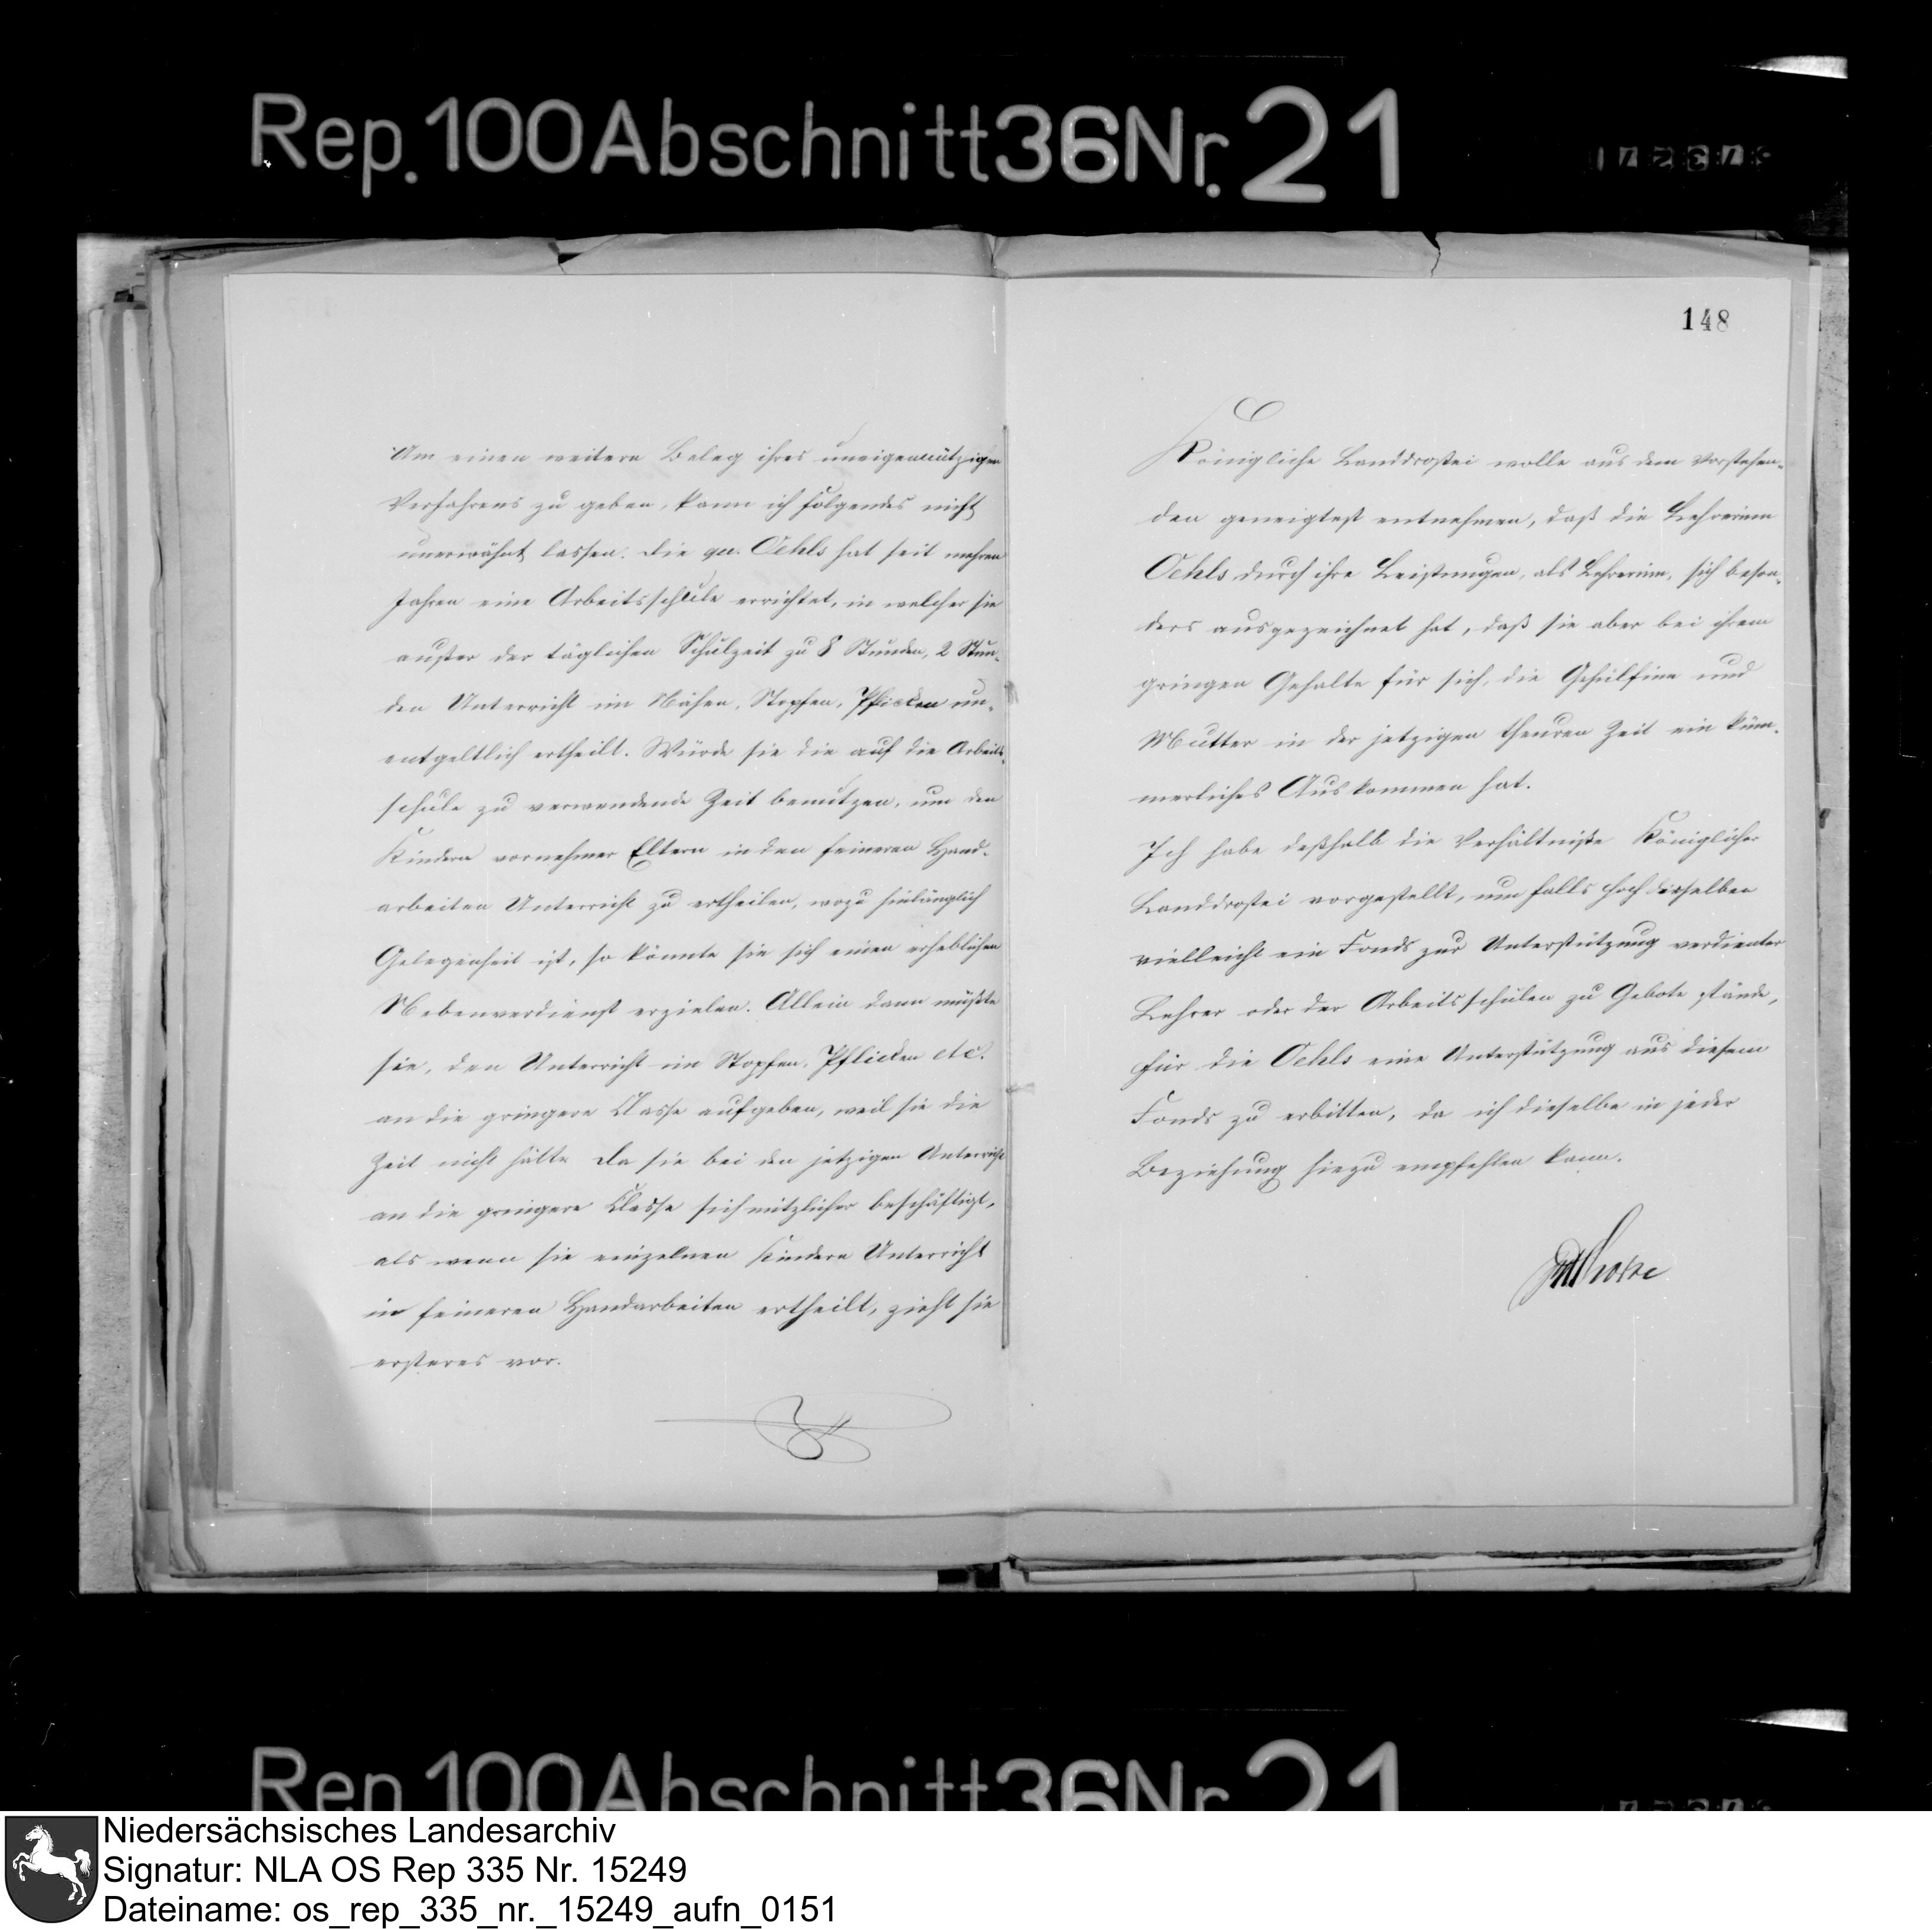 Rep. 100 Abschnitt 36 Nr. 21
148
Um einen weitern Beleg ihres uneigennützigen
Verfahrens zu geben, kann ich folgendes nicht
unerwähnt lassen. Die qu. Oehls hat seit mehren
Jahren eine Arbeitsschule errichtet, in welcher sie
außer der täglichen Schulzeit zu 8 Stunden, 2 Stun-
den Unterricht im Nähen, Stopfen, Pflicken un-
entgeltlich ertheilt. Würde sie die auf die Arbeits-
schule zu verwendende Zeit benutzen, um den
Kindern vornehmer Eltern in den feineren Hand-
arbeiten Unterricht zu ertheilen, wozu hinlänglich
Gelegenheit ist, so könnte sie sich einen erheblichen
Nebenverdienst erzielen. Allein dann müßte
sie, den Unterricht im Stopfen, Pflicken etc.
an die gringere Classe aufgeben, weil sie die
Zeit nicht hätte. Da sie bei den jetzigen Unterricht
an die gringere Classe sich nützlicher beschäftigt,
als wenn sie einzelnen Kindern Unterricht
in feineren Handarbeiten ertheilt, zieht sie
ersteres vor.
Königliche Landdrostei wolle aus dem Vorstehen-
den geneigtest entnehmen, daß die Lehrerinn
Oehls durch ihre Leistungen, als Lehrerinn, sich beson-
ders ausgezeichnet hat, daß sie aber bei ihrem
gringen Gehalte für sich, die Gehülfinn und
Mutter in der jetzigen theuren Zeit ein küm-
merliches Auskommen hat.
Ich habe deßhalb die Verhältniße Königlicher
Landdrostei vorgestellt, um falls Hochderselben
vielleicht ein Fonds zur Unterstützung verdienter
Lehrer oder der Arbeitsschulen zu Gebote stände,
für die Oehls eine Unterstützung aus diesem
Fonds zu erbitten, da ich dieselbe in jeder
Beziehung hiezu empfehlen kann.
Rep. 100 Abschnitt 36 Nr. 21
Niedersächsisches Landesarchiv
Signatur: NLA OS Rep 335 Nr. 15249
Dateiname: os_rep_335_nr._15249_aufn_0151